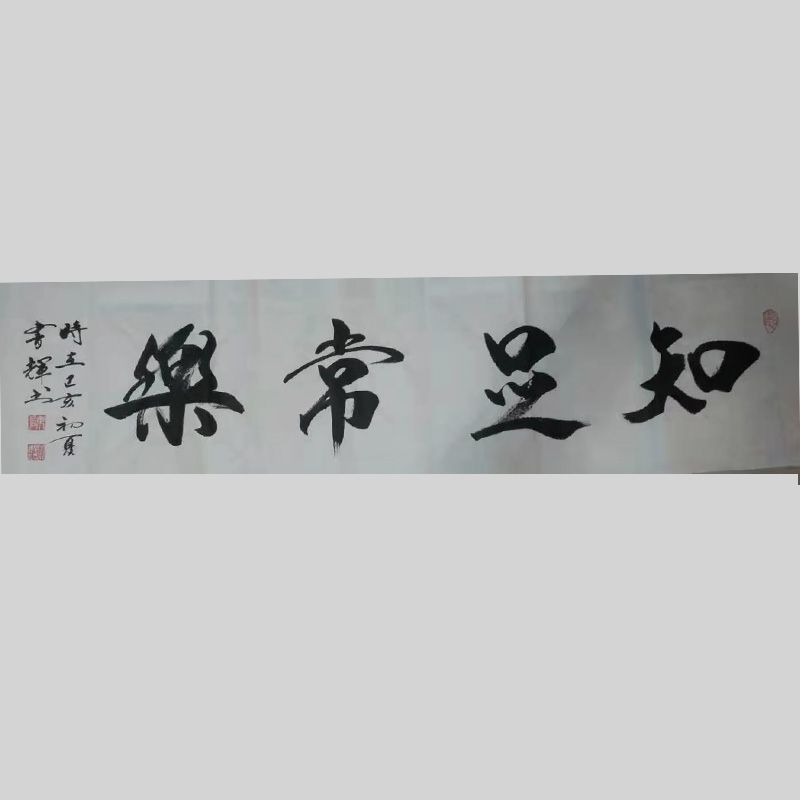 知足常樂
時在己亥初夏
書輝书